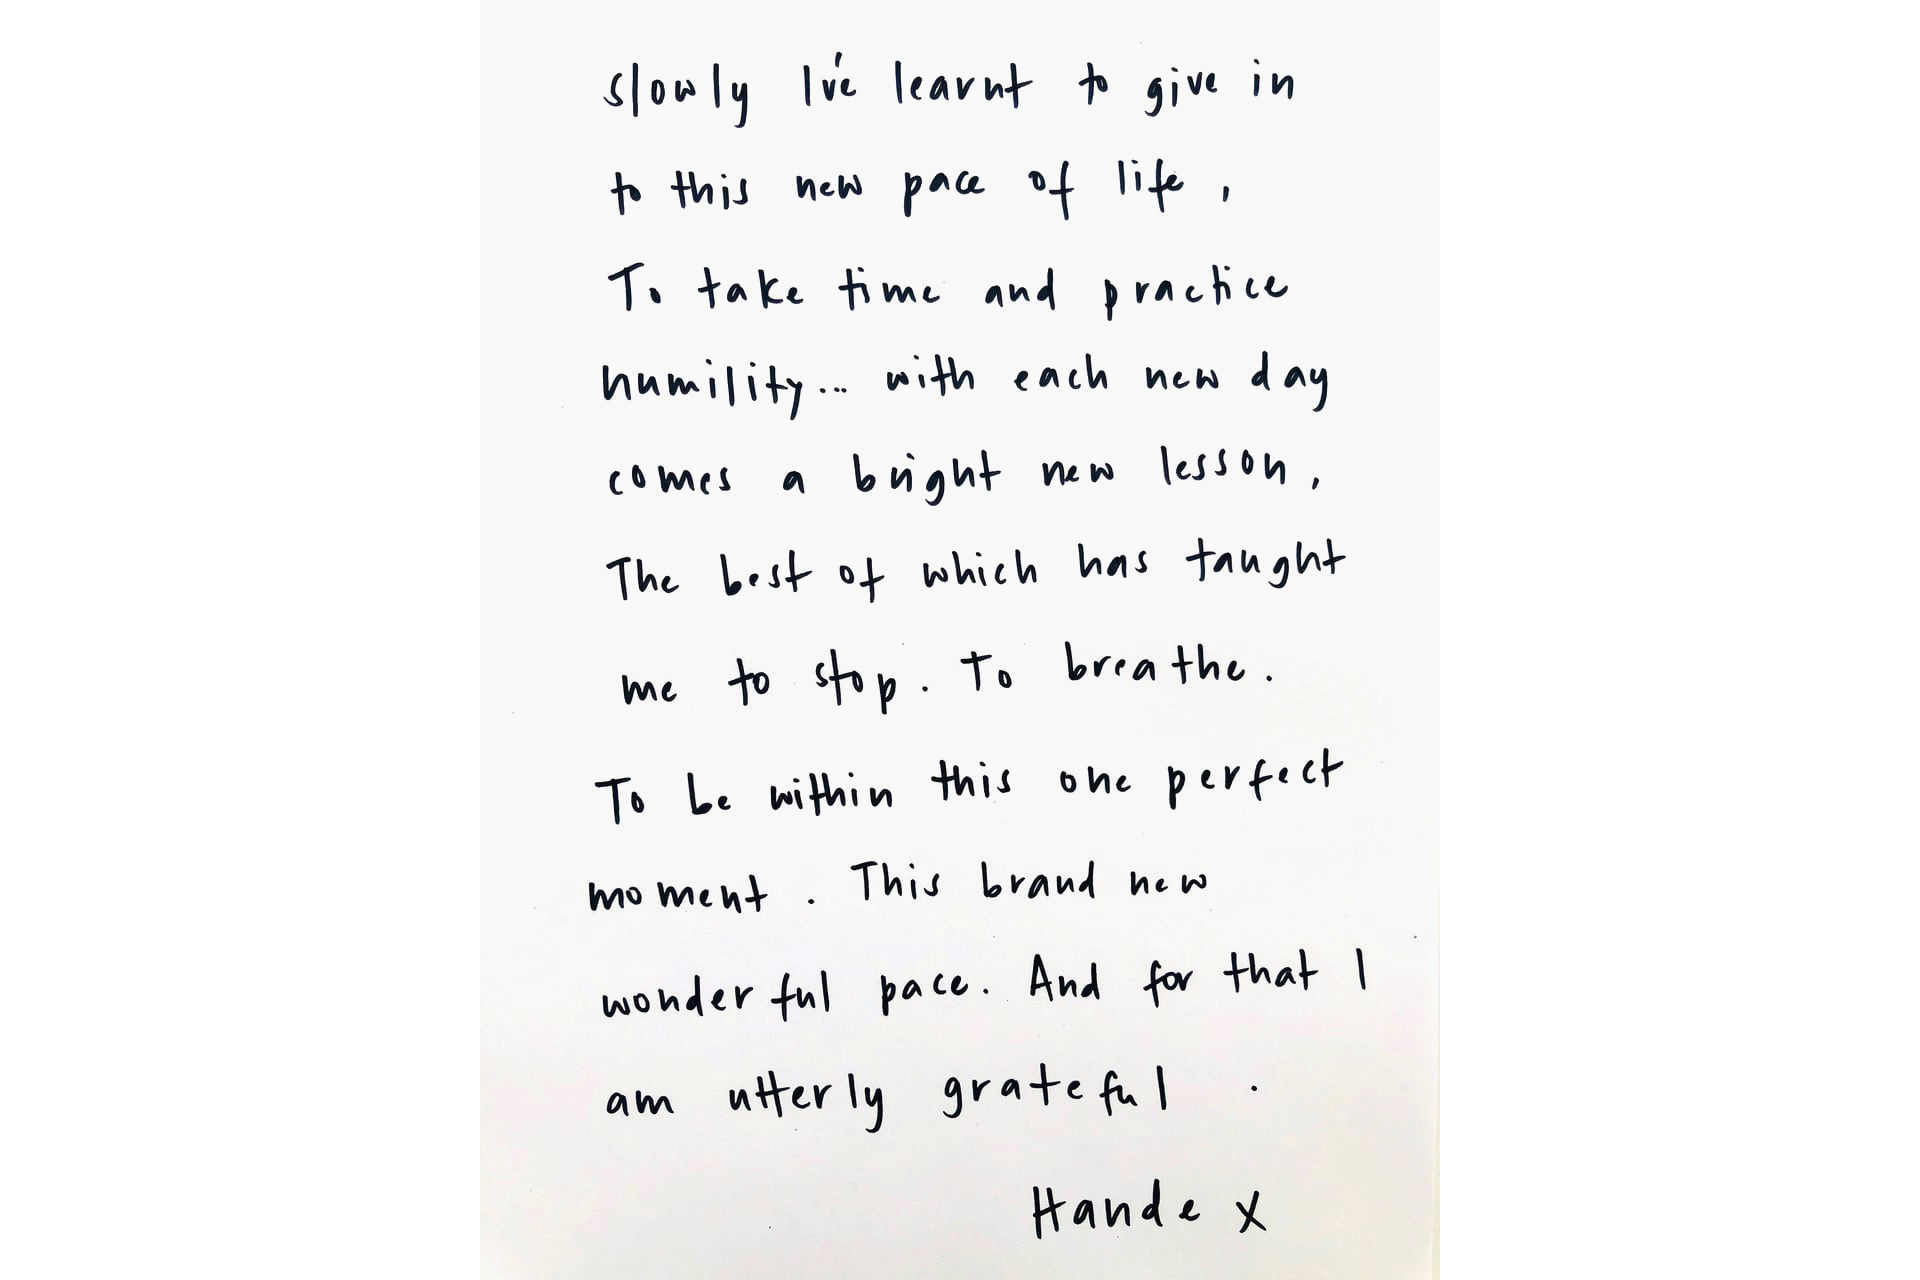 slowly I've learnt to give in
to this new pace of life,
To take time and practice
humility... with each new day
comes a bright new lesson,
The best of which has taught
me to stop. To breathe.
To be within this one perfect
moment. This brand new
wonderful pace. And for that I
am utterly grateful.
Hande x